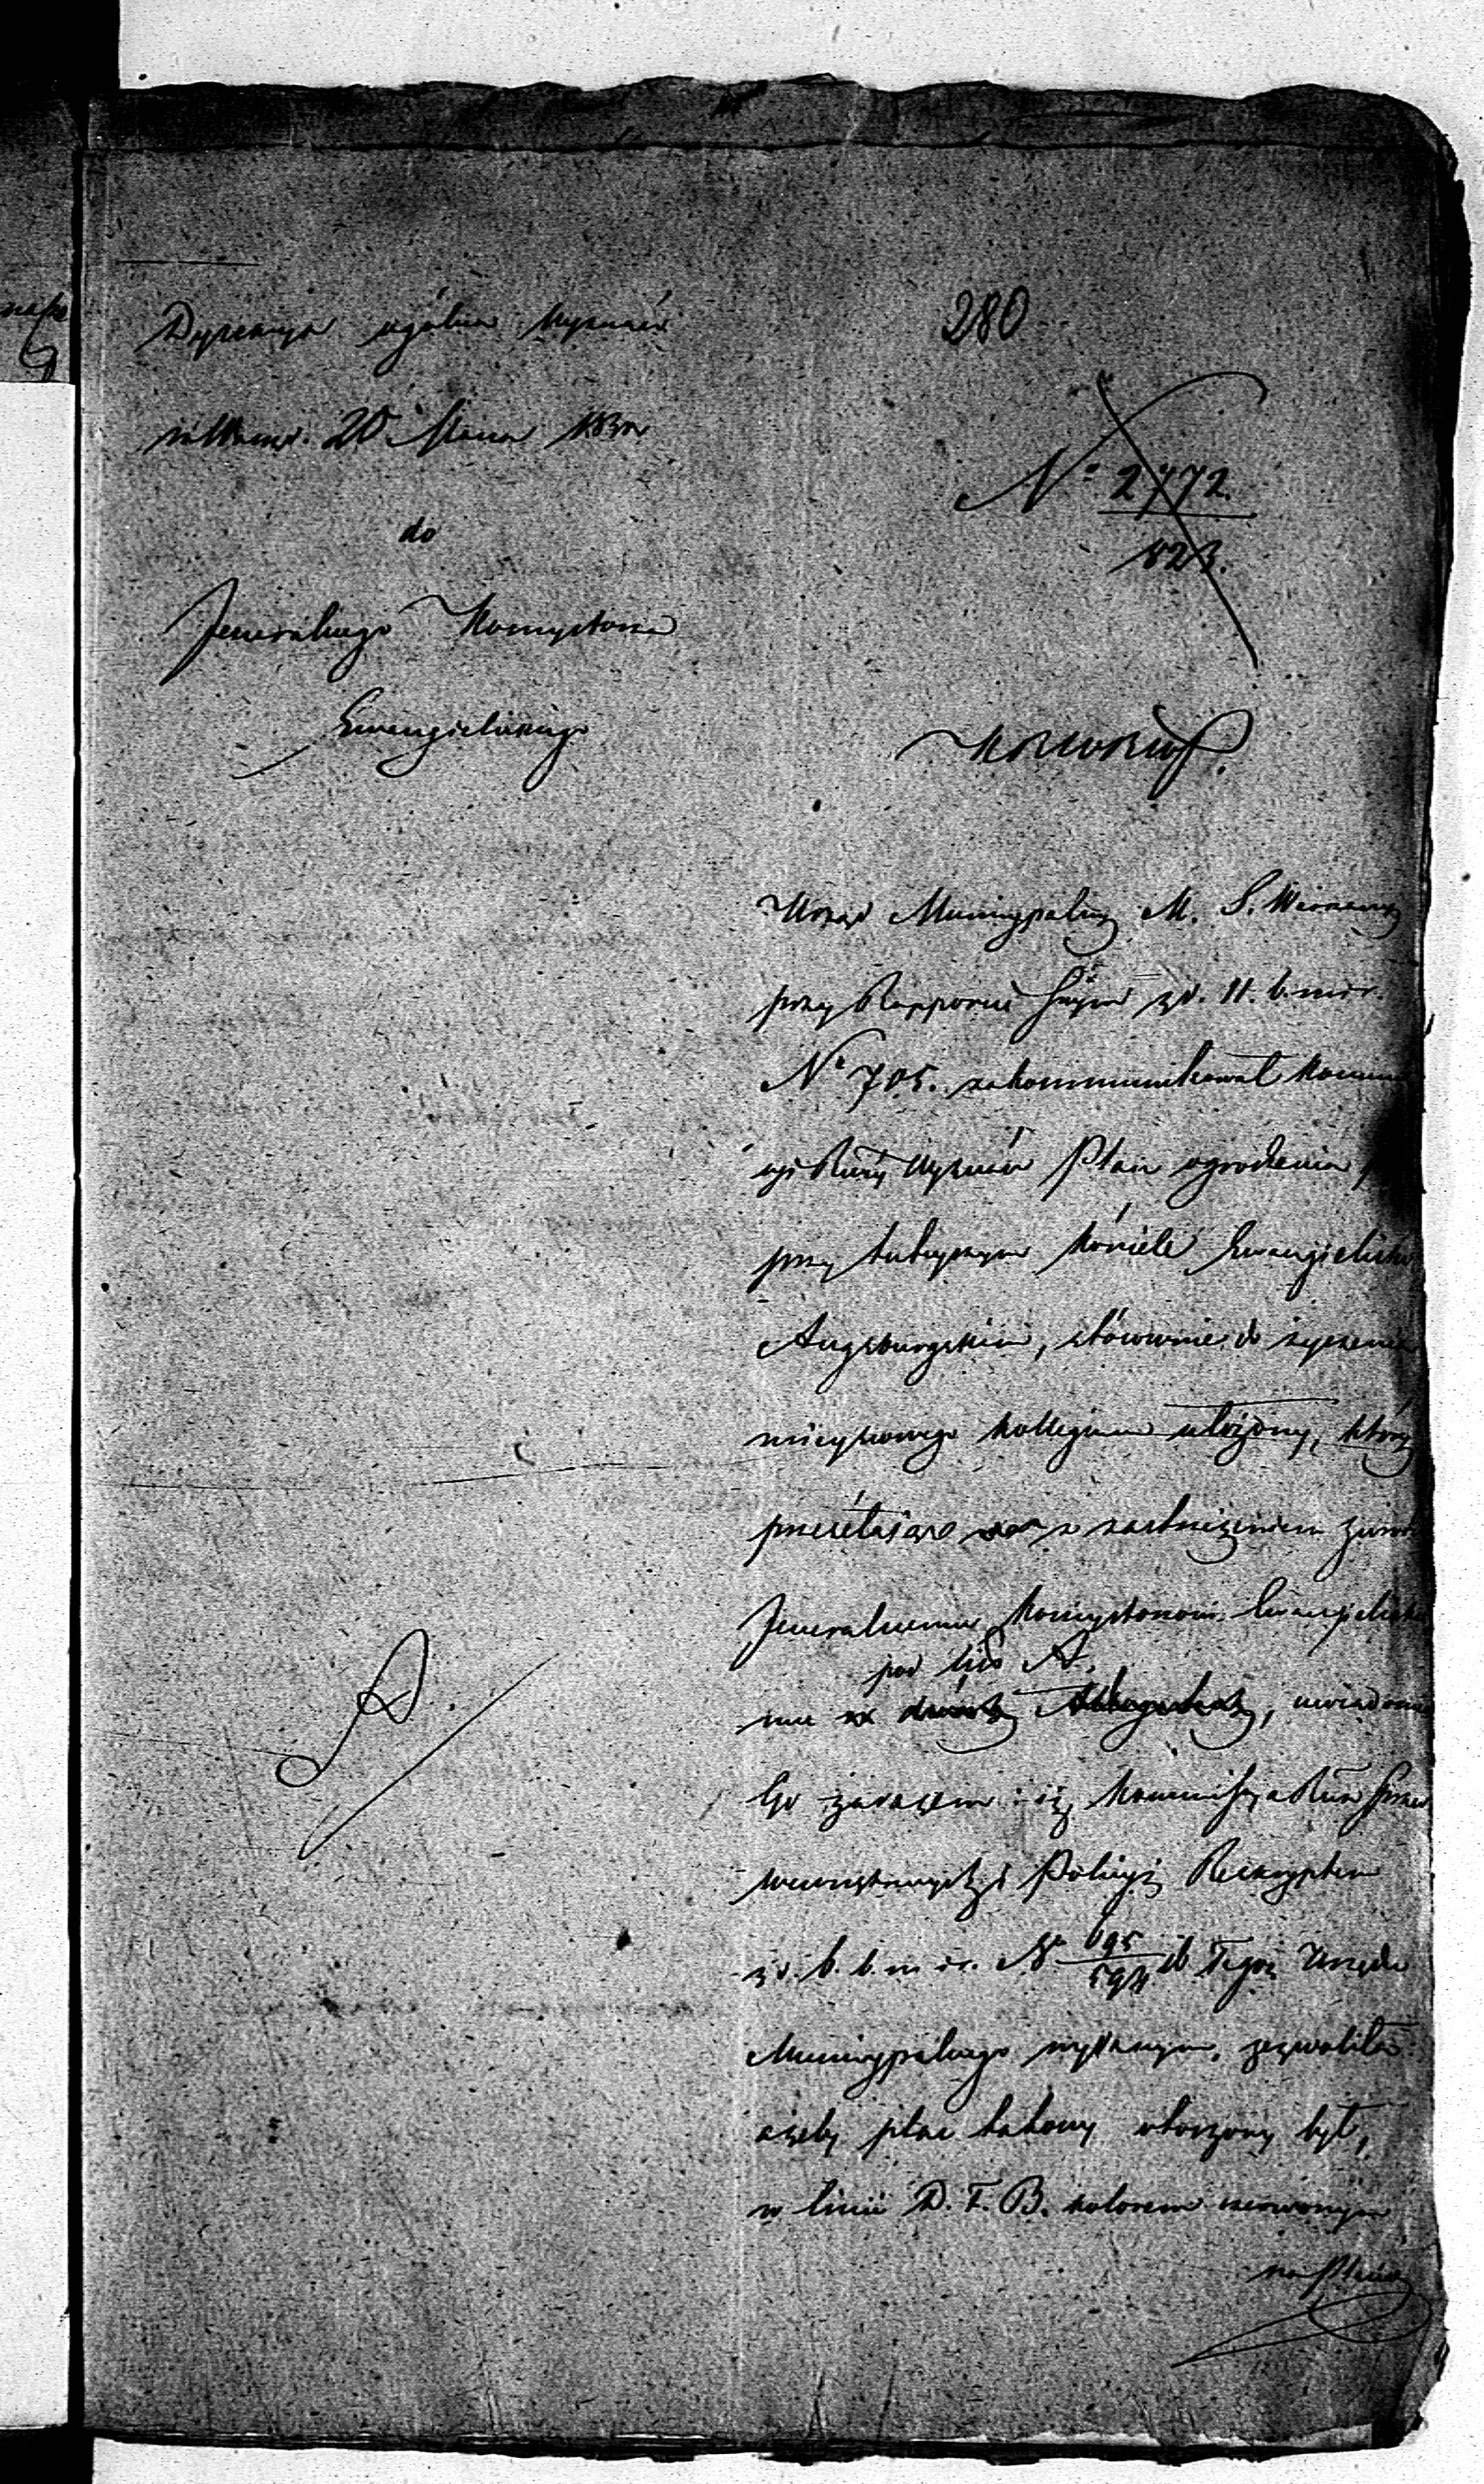 280
Dyrekcya ogólna Wyznań
20 Marca 1830
do
Jeneralnego Konsystorza
Ewangielickiego
Nº 2772.
823.
Urząd Municypalny M. S. Warszawy
przy Rapporcie Swym z d. 11. b. m. i r.
Nº 705. zakommunikował
Wyznań Plan ogrodzenia
przy tutejszym Kościele Ewangielicko
Augsburgskim, stósownie do życzenia
mieyscowego Kollegium ułożony, który
przesełaiąc z zastrzeżeniem zwrotu
Jeneralnemu Konsystorzowi Ewangielickie
pod lit. A.
mu uwiadomia
Go zarazem iż Kommissya Rząd. Spraw
Wewnętrznych i Policyi Reskryptem
z d. 6. b. m. i r. Nº 695/594 do Tegoż Urzędu
Municypalnego wydanym, zezwoliła
ażeby plac takowy otoczony był,
w linii D. F. B. kolorem czerwonym
na Planie